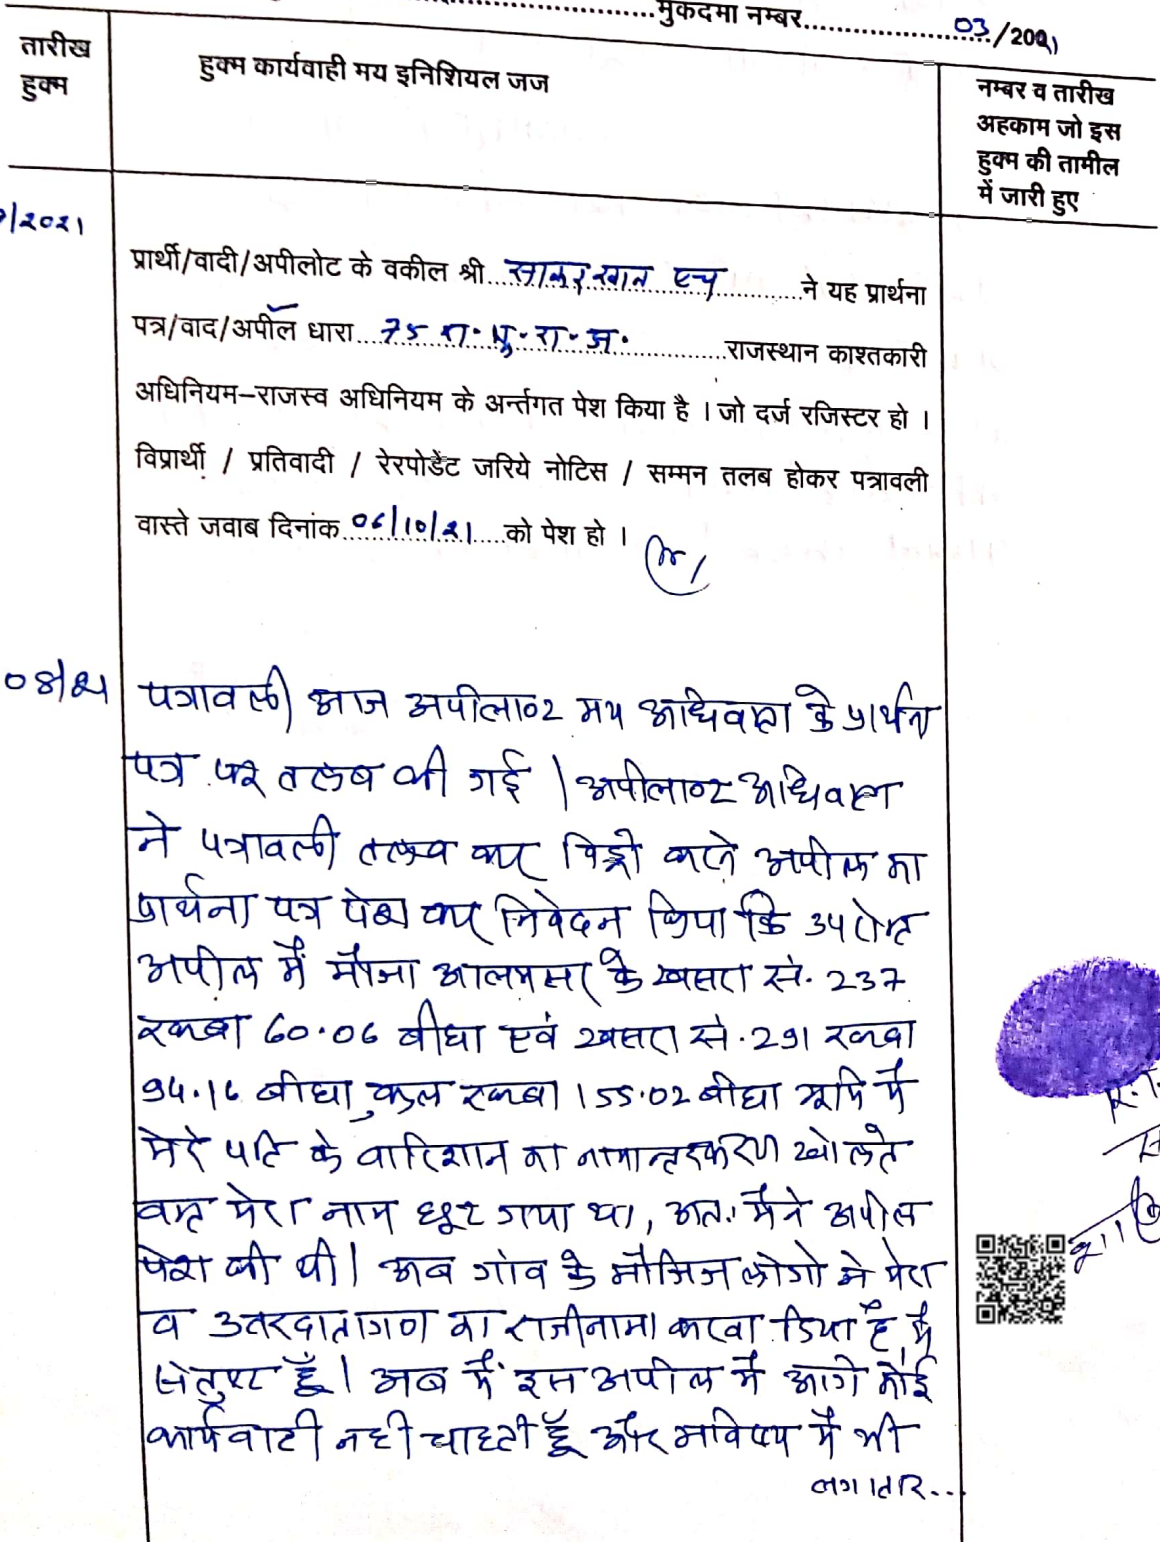 मुकदमा नम्बर 03/2021
तारीख हुक्म
हुक्म कार्यवाही मय इनिशियल जज
नम्बर व तारीख
अहकाम जो इस
हुक्म की तामील
में जारी हुए
/2021
प्रार्थी/वादी/अपीलोट के वकील श्री साकर खान एच ने यह प्रार्थना
पत्र/वाद/अपील धारा 75 रा. भू. रा. अ. राजस्थान काश्तकारी
अधिनियम–राजस्व अधिनियम के अर्न्तगत पेश किया है । जो दर्ज रजिस्टर हो ।
विप्रार्थी / प्रतिवादी / रेरपोडेंट जरिये नोटिस / सम्मन तलब होकर पत्रावली
वास्ते जवाब दिनांक 06/10/21 को पेश हो ।
08/21
पत्रावली आज अपीलाण्ट मय अधिवक्ता के प्रार्थना
पत्र पर तलब की गई | अपीलाण्ट अधिवक्ता
ने पत्रावली तलब कर विड्रो करने अपील का
प्रार्थना पत्र पेश कर निवेदन किया कि उपरोक्त
अपील में मौजा आलमसर के खसरा सं. 237
रकबा 60.06 बीघा एवं खसरा सं. 291 रकबा
94.16 बीघा, कुल रकबा 155.02 बीघा भूमि में
मेरे पति के वारिशान का नामान्तरकरण खोलते
वक्त मेरा नाम छूट गया था, अतः मैने अपील
पेश की थी| अब गांव के मौजिज लोगो ने मेरा
व उतरदातागण का राजीनामा करवा दिया है, मैं
संतुष्ट हूँ| अब मैं इस अपील में आगे कोई
कार्यवाही नही चाहती हूँ और भविष्य में भी
लगातार...